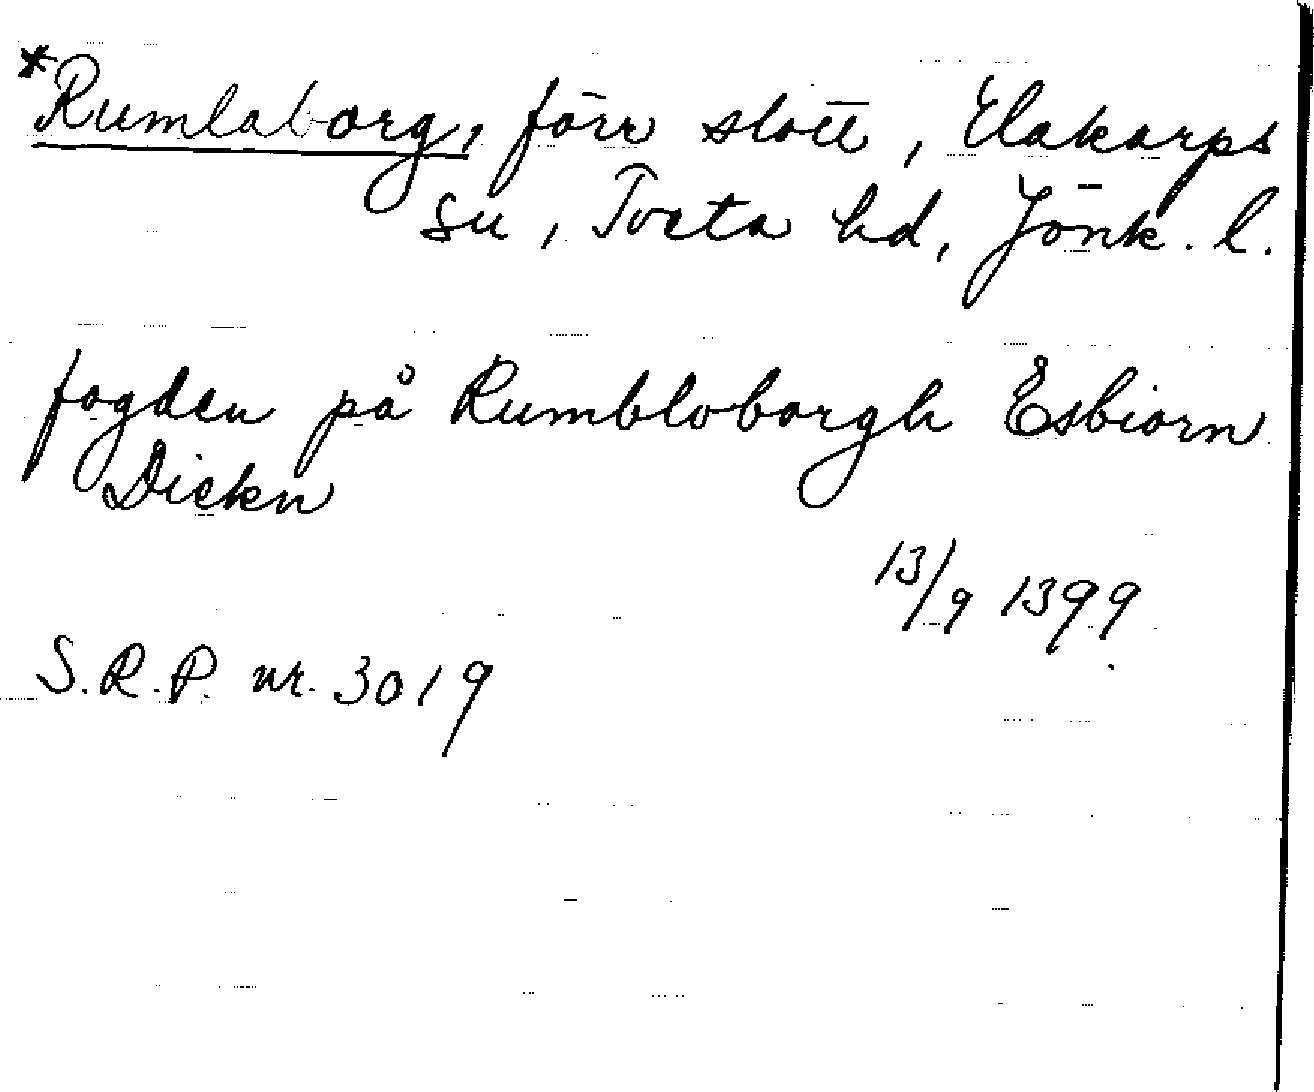 *Rumlaborg, förr slott, Hakarps
sn, Tveta hd, Jönk. l.
fogden på Rumbloborgh Esbiorn
Diekn
13/9 1399
S.R.P. nr. 3019